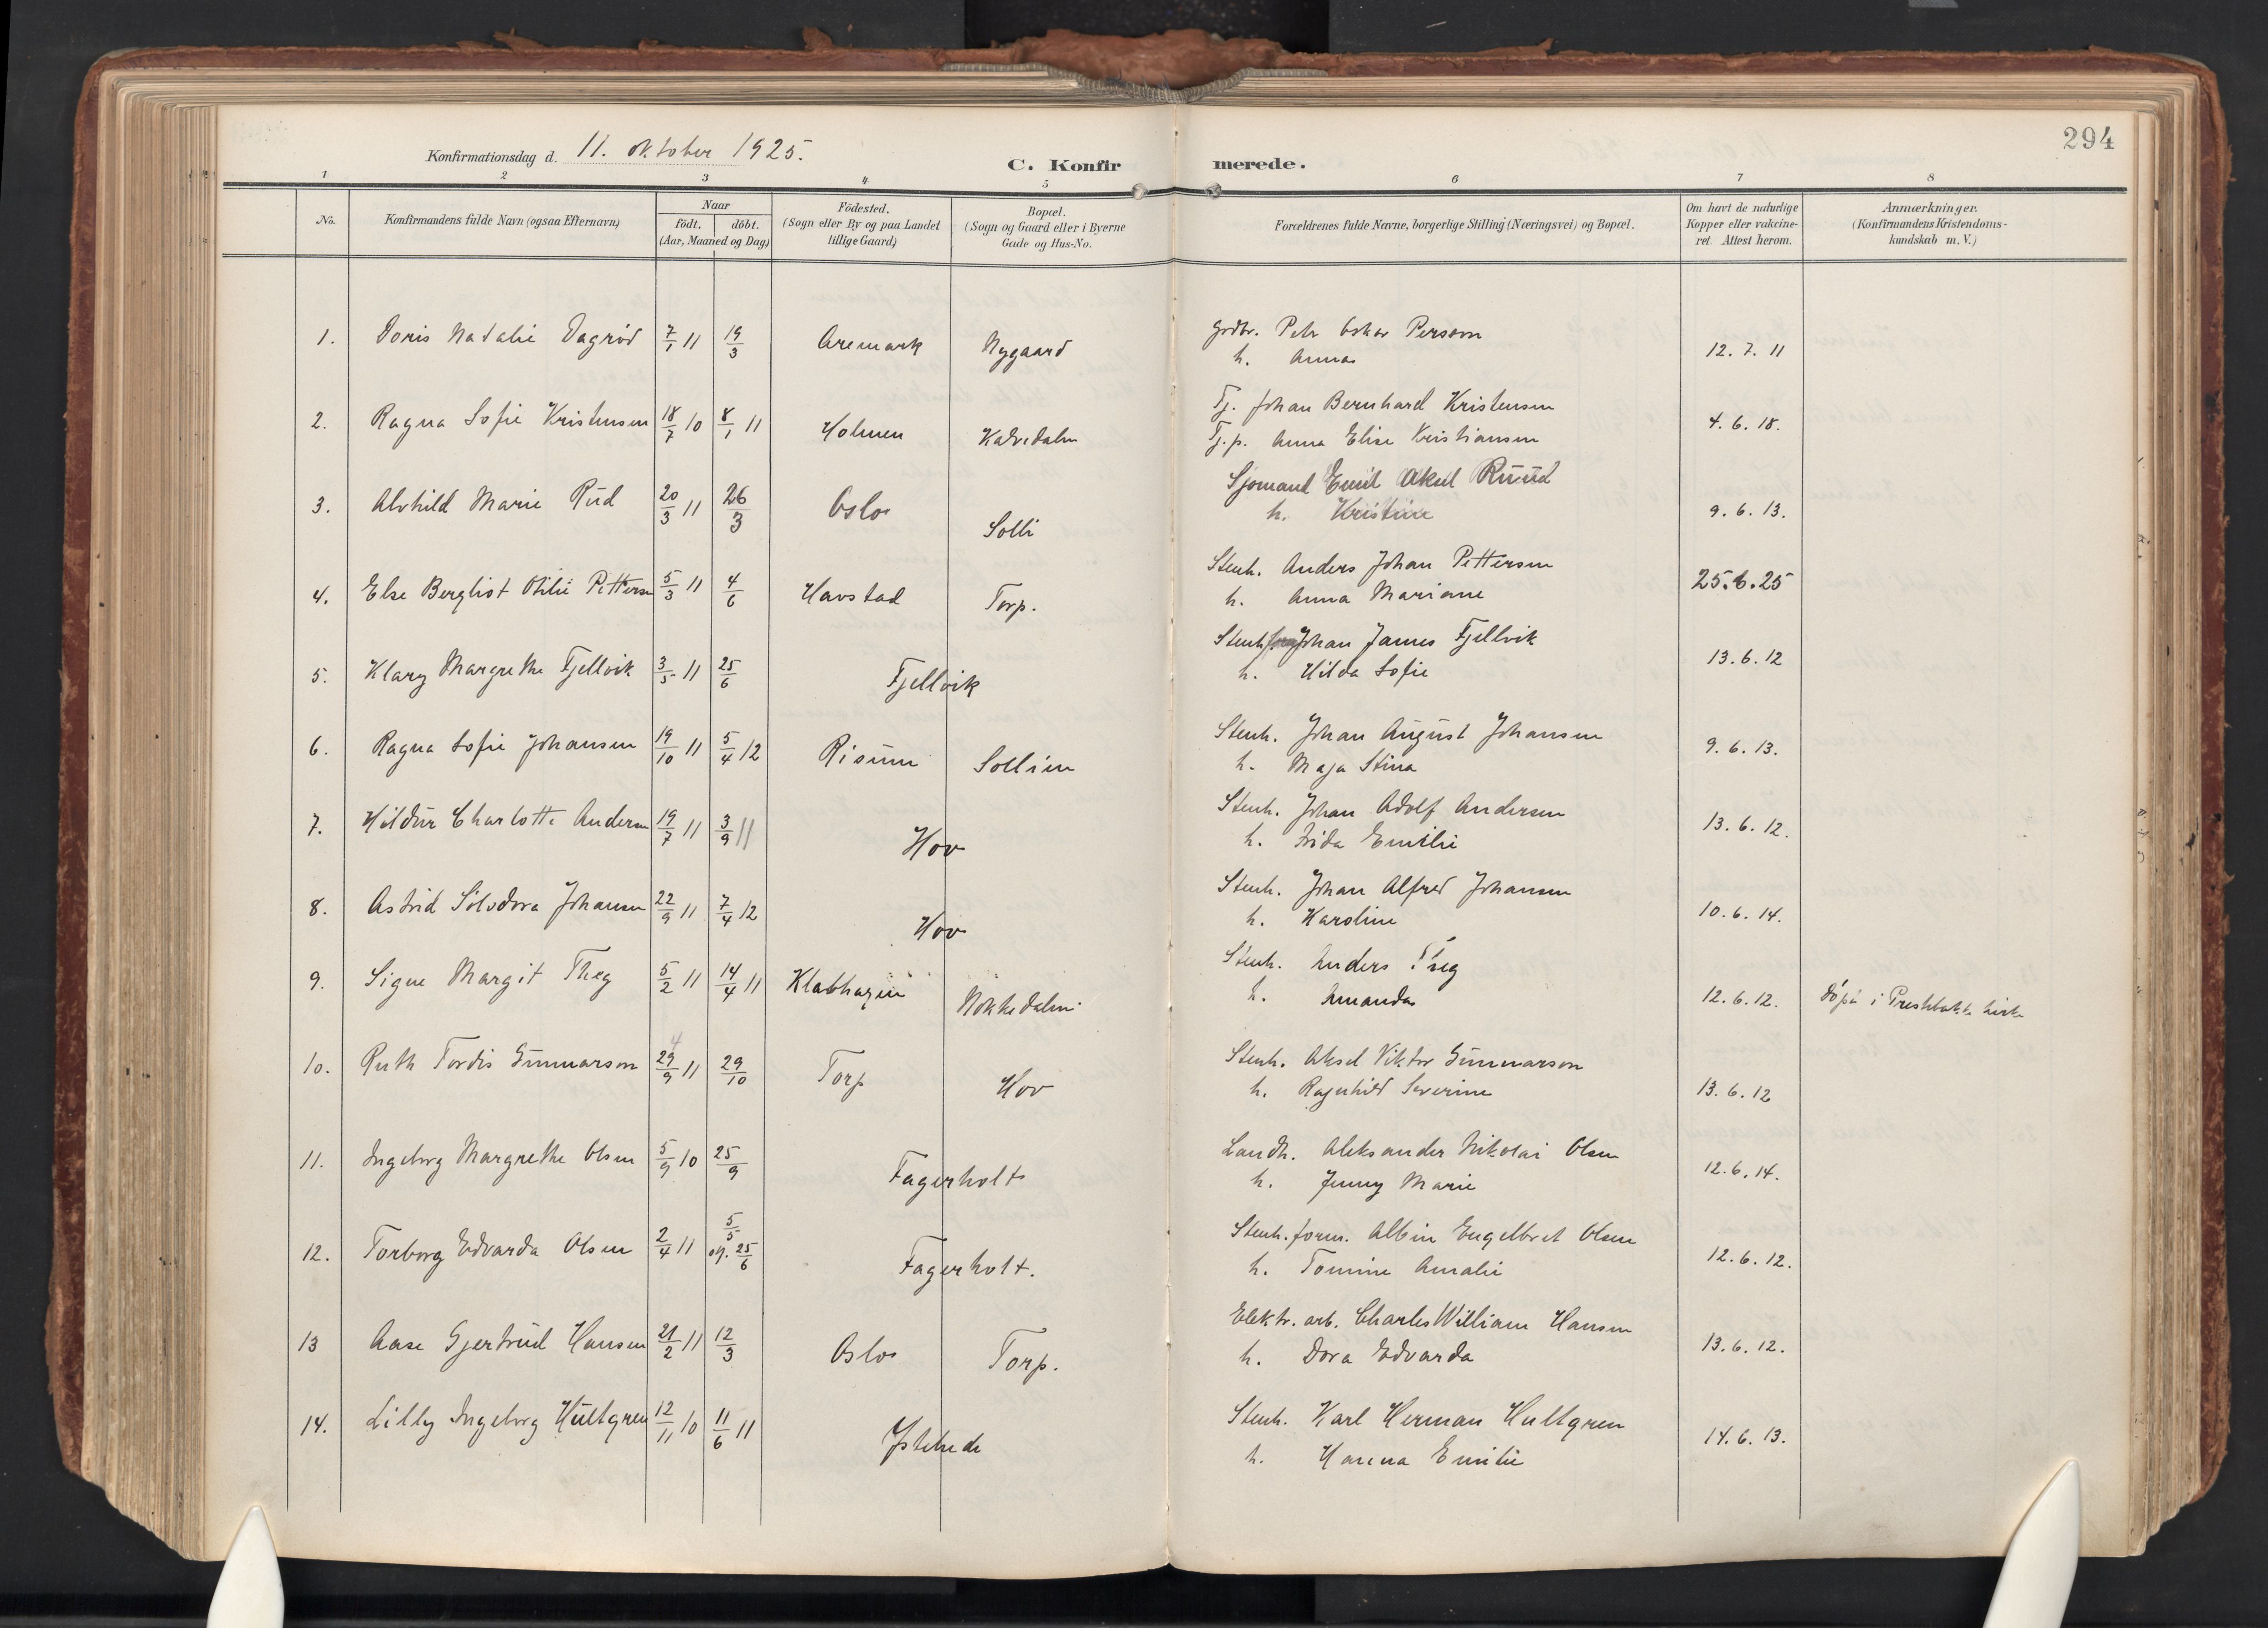 294
Konfirmationsdag d. 11. oktober 1925.
C. Konfir merede.
1 2 3 4 5 6 7 8
No.
Konfirmandens fulde Navn (ogsaa Efternavn)
Naar
födt. döbt.
(Aar, Maaned og Dag)
Födested.
(Sogn eller By og paa Landet
tillige Gaard)
Bopæl.
(Sogn og Gaard eller i Byerne
Gade og Hus-No.
Forældrenes fulde Navne, borgerlige Stilling (Næringsvei) og Bopæl.
Om havt de naturlige
Kopper eller vakcine-
ret. Attest herom.
Anmærkninger.
(Konfirmandens Kristendoms-
kundskab m. V.)
1. Doris Natalie Dagrød 7/1 11 19/3 Aremark Nygaard Grdbr. Petr Oskar Person
h. Anna 12. 7. 11
2. Ragna Sofie Kristensen 18/7 10 8/1 11 Holmen Kalvedalen Tj. Johan Bernhard Kristensen
Tj.p. Anna Elise Kristiansen 4. 6. 18.
3. Alvhild Marie Rud 20/3 11 26/3 Oslo Solli Sjomand Emil Aksel Ruud
h. Kristine 9. 6. 13.
4. Else Bergliot Otilie Pettersen 5/3 11 4/6 Havstad Torp. Stenh. Anders Johan Pettersen
h. Anna Mariane 25. 6. 25
5. Klary Margrethe Fjellvik 3/5 11 25/6 Fjellvik Stenh. Johan James Fjellvik
h. Hilda Sofie 13. 6. 12
6. Ragna Sofie Johansen 19/10 11 5/4 12 Risum Sollien Stenh. Johan August Johansen
h. Maja Stina 9. 6. 13.
7. Hildur Charlotte Andersen 19/7 11 3/9 11 Hov Stenh. Johan Adolf Andersen
h. Frida Emilie 13. 6. 12.
8. Astrid Solvdora Johansen 22/9 11 7/4 12 Hov Stenh. Johan Alfred Johansen
h. Karoline 10. 6. 14.
9. Signe Margit Theg 5/2 11 14/4 11 Klabhagen Nokkedalen Stenh. Anders
h. Amanda 12. 6. 12. döpt i Prestebakke kirke
10. Ruth Tordis Gunnarson 4 29/9 11 29/10 Torp Hov Stenh. Aksel Viktor Gunnarson
h. Ragnhild Severine 13. 6. 12
11. Ingeborg Margrethe Olsen 5/9 10 25/9 Fagerholt Landh. Aleksander Nikolai Olsen
h. Jenny Marie 12. 6. 14.
12. Torborg Edvarda Olsen 2/4 11 5/5 og. 25/6 Fagerholt. Stenh. form. Albin Engelbret Olsen
h. Tomine Amalie 12. 6. 12.
13 Aase Gjertrud Hansen 21/2 11 12/3 Oslo Torp. Elektr. arb. Charles William Hansen
h. Dora Edvarda 13. 6. 12.
14. Lilly Ingeborg Hultgren 12/11 10 11/6 11 Ystehede Stenh. Karl Herman Hultgren
h. Hanna Emilie 14. 6. 13.